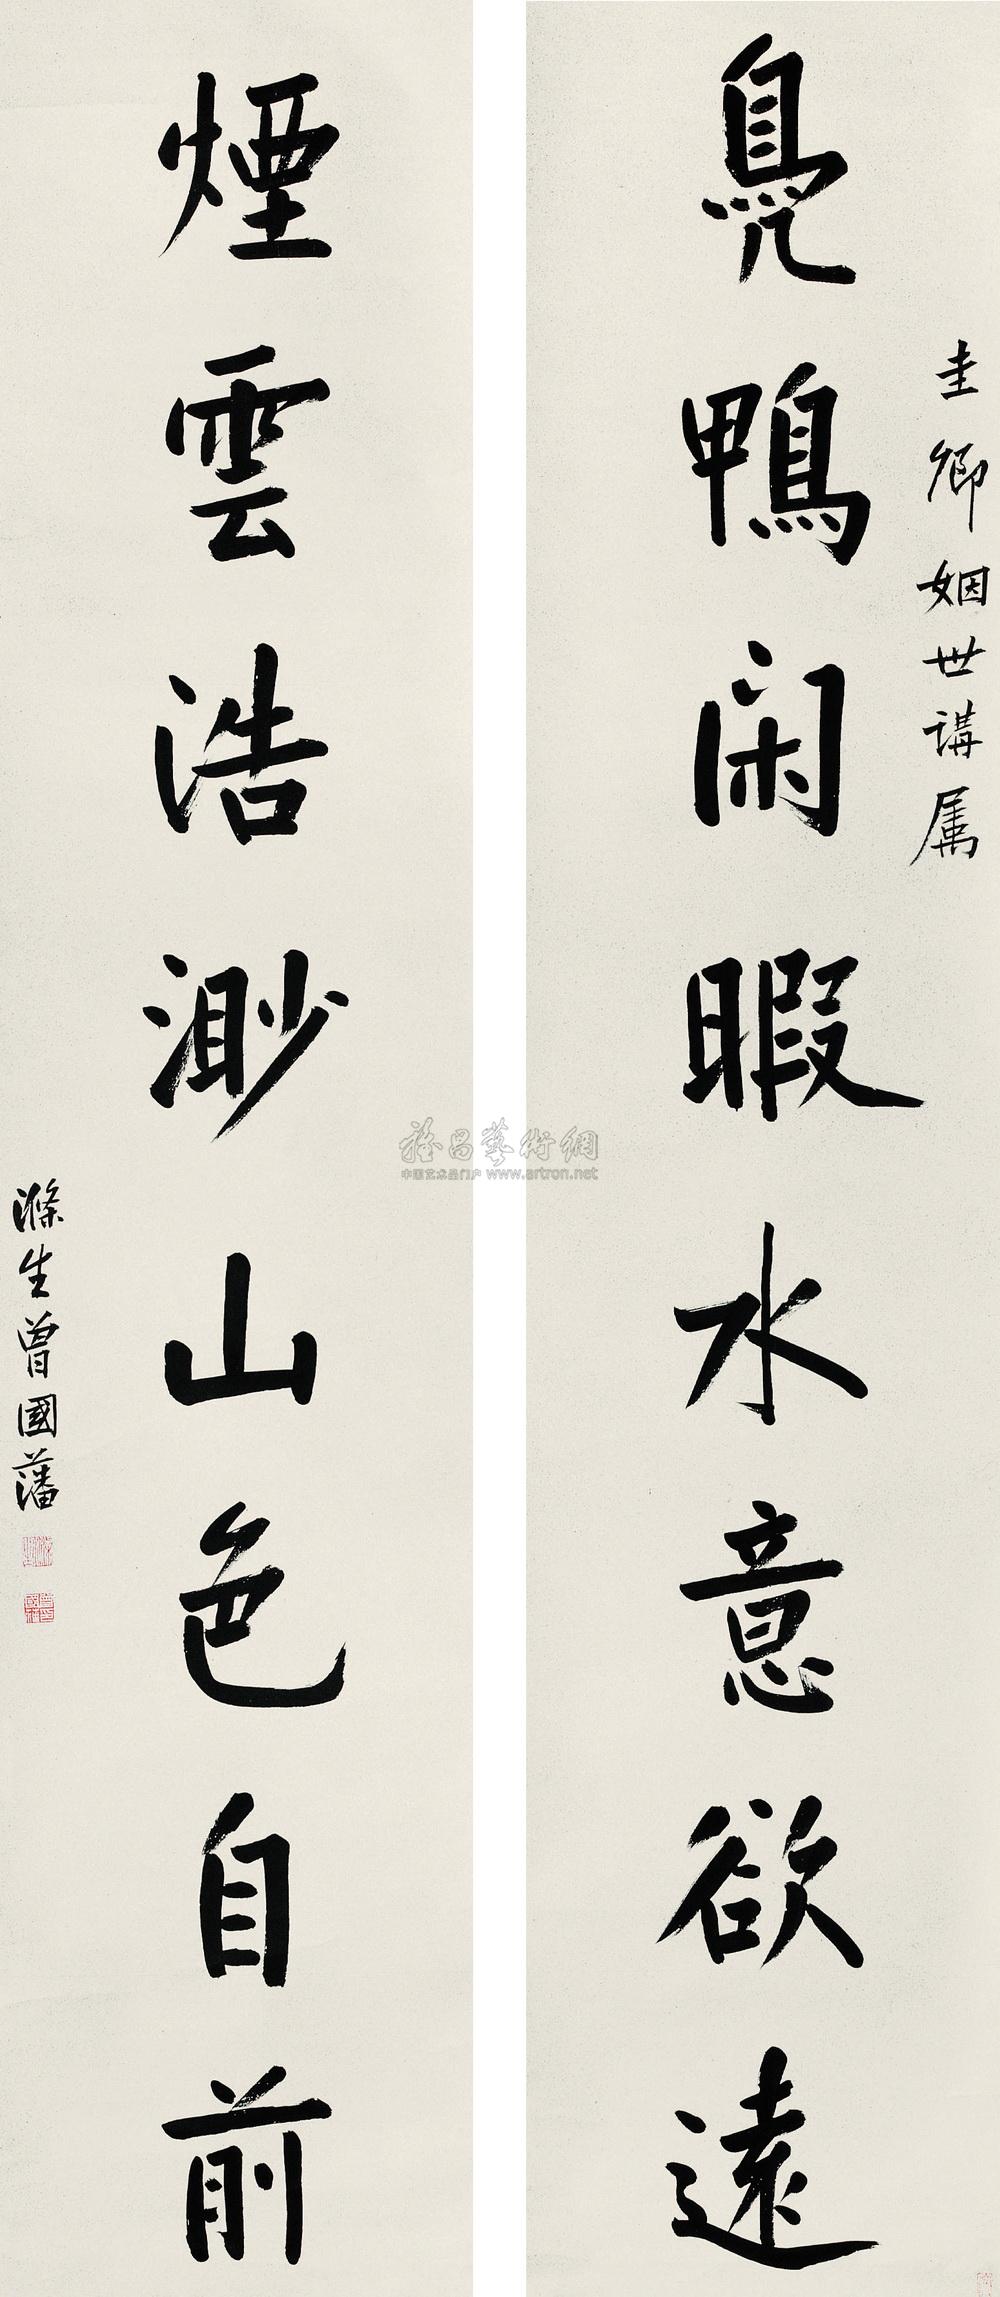 圭卿姻世講属
鳧鴨闲暇水意欲遠
煙雲浩渺山色自前
滌生曾國藩
雅昌藝術網
中国艺术品门户 www.artron.net